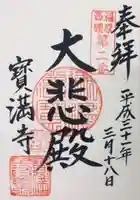 奉拝
平成三十一年
三月十八日
大悲殿
寳満寺